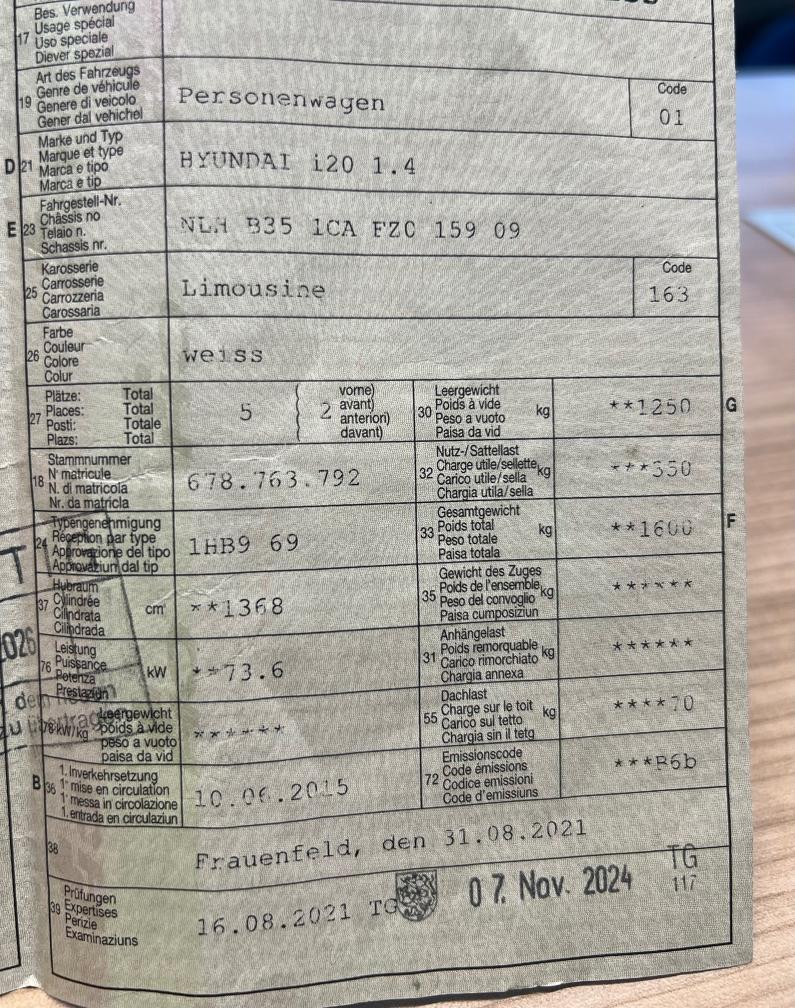 17 Bes. Verwendung
Usage spécial
Uso speciale
Diever spezial
19 Art des Fahrzeugs
Genre de véhicule
Genere di veicolo
Gener dal vehichel
Personenwagen
Code
01
D 21 Marke und Typ
Marque et type
Marca e tipo
Marca e tip
HYUNDAI i20 1.4
E 23 Fahrgestell-Nr.
Châssis no
Telaio n.
Schassis nr.
NLH B35 1CA FZC 159 09
25 Karosserie
Carrosserie
Carrozzeria
Carossaria
Limousine
Code
163
26 Farbe
Couleur
Colore
Colur
weiss
27 Plätze: Total
Places: Total
Posti: Totale
Plazs: Total
5
( 2 vorne)
avant)
anteriori)
davant)
30 Leergewicht
Poids à vide
Peso a vuoto
Paisa da vid
kg
**1250
G
18 Stammnummer
N° matricule
N. di matricola
Nr. da matricla
678.763.792
32 Nutz-/Sattellast
Charge utile/sellette
Carico utile/sella
Chargia utila/sella
kg
***350
24 Typengenehmigung
Réception par type
Approvazione del tipo
Approvaziun dal tip
1HB9 69
33 Gesamtgewicht
Poids total
Peso totale
Paisa totala
kg
**1600
F
37 Hubraum
Cylindrée
Cilindrata
Cilindrada
cm³
**1368
35 Gewicht des Zuges
Poids de l'ensemble
Peso del convoglio
Paisa cumposiziun
kg
******
76 Leistung
Puissance
Potenza
Prestaziun
kW
**73.6
31 Anhängelast
Poids remorquable
Carico rimorchiato
Chargia annexa
kg
******
78 kW/kg Leergewicht
poids à vide
peso a vuoto
paisa da vid
******
55 Dachlast
Charge sur le toit
Carico sul tetto
Chargia sin il tetg
kg
****70
B 36 1. Inverkehrsetzung
1e mise en circulation
1a messa in circolazione
1. entrada en circulaziun
10.06.2015
72 Emissionscode
Code émissions
Codice emissioni
Code d'emissiuns
***B6b
38
Frauenfeld, den 31.08.2021
39 Prüfungen
Expertises
Perizie
Examinaziuns
16.08.2021 TG
07. Nov. 2024
TG
117